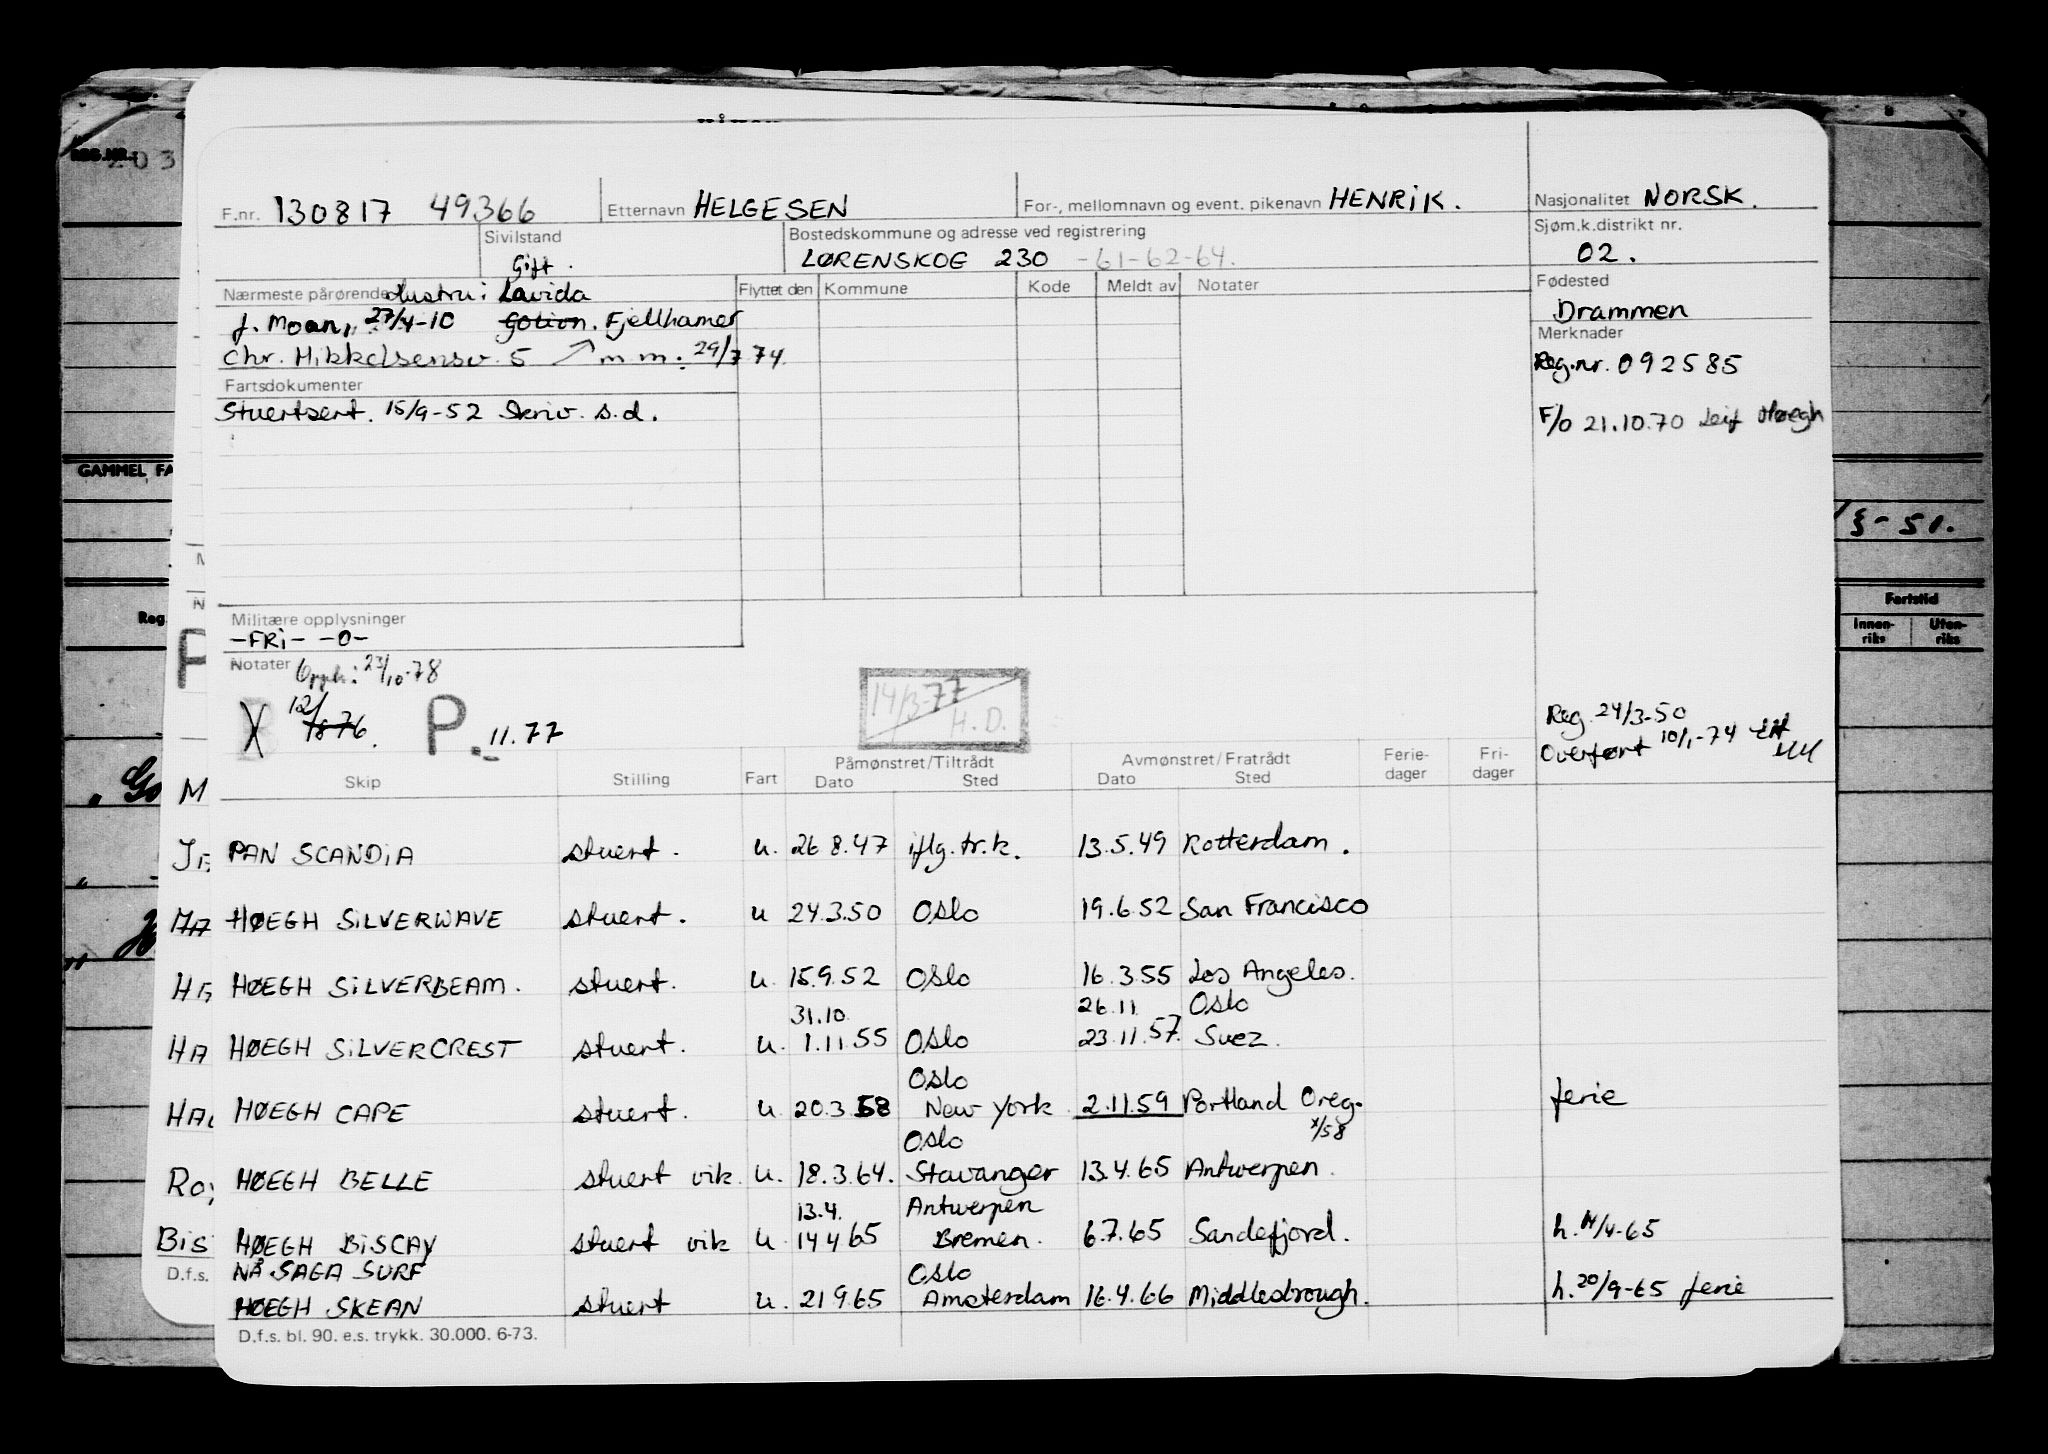 REG.NR.: 203
F.nr. 130817 49366 Etternavn HELGESEN For-, mellomnavn og event. pikenavn HENRIK. Nasjonalitet NORSK.
Sivilstand Gift. Bostedskommune og adresse ved registrering LØRENSKOG 230 -61-62-64. Sjøm.k.distrikt nr. 02.
Nærmeste pårørende Hustru: Lavida Flyttet den Kommune Kode Meldt av Notater Fødested
J. Moan, 27/4-10 Fjellhamer Drammen
Chr. Mikkelsensv. 5 m m. 29/7 74. Merknader
Reg.nr. 092585
Fartsdokumenter
Stuertsert. 15/9-52 Skriv. s.d. F/o 21.10.70 Leif Høegh
GAMMEL FA
/3-51.
Fartstid
Innen-riks Uten-riks
Reg.
Militære opplysninger
-FRi- -0-
Notater Opph: 23/10-78
X 12/ 1876. P. 11.77 14/3-77 H.D.
Reg. 24/3-50
Overført 10/1-74
Skip Stilling Fart Påmønstret/Tiltrådt Dato Sted Avmønstret/Fratrådt Dato Sted Ferie-dager Fri-dager
PAN SCANDiA stuert. u. 26 8.47 iflg.tr.k. 13.5.49 Rotterdam.
HØEGH SiLVERWAVE stuert. u 24.3.50 Oslo 19.6.52 San Francisco
HØEGH SiLVERBEAM. stuert. u. 15.9.52 Oslo 16.3.55 Los Angeles.
31.10. 26.11. Oslo
HØEGH SiLVERCREST stuert. u. 1.11.55 Oslo 23.11.57. Suez.
Oslo
HØEGH CAPE stuert. u. 20.3.58 New York 2.11.59 Portland Oreg. ferie
Oslo x/58
HØEGH BELLE stuert vik. u. 18.3.64. Stavanger 13.4.65 Antwerpen.
13.4. Antwerpen
HØEGH BiSCAY stuert vik u 14 4 65 Bremen. 6.7.65 Sandefjord. h. 14/4-65
NÅ SAGA SURF Oslo
HØEGH SKEAN stuert u. 21 9.65 Amsterdam 16.4.66 Middlesbrough. h. 20/9-65 ferie
D.f.s. bl. 90. e.s. trykk. 30.000. 6-73.
D.f.s.